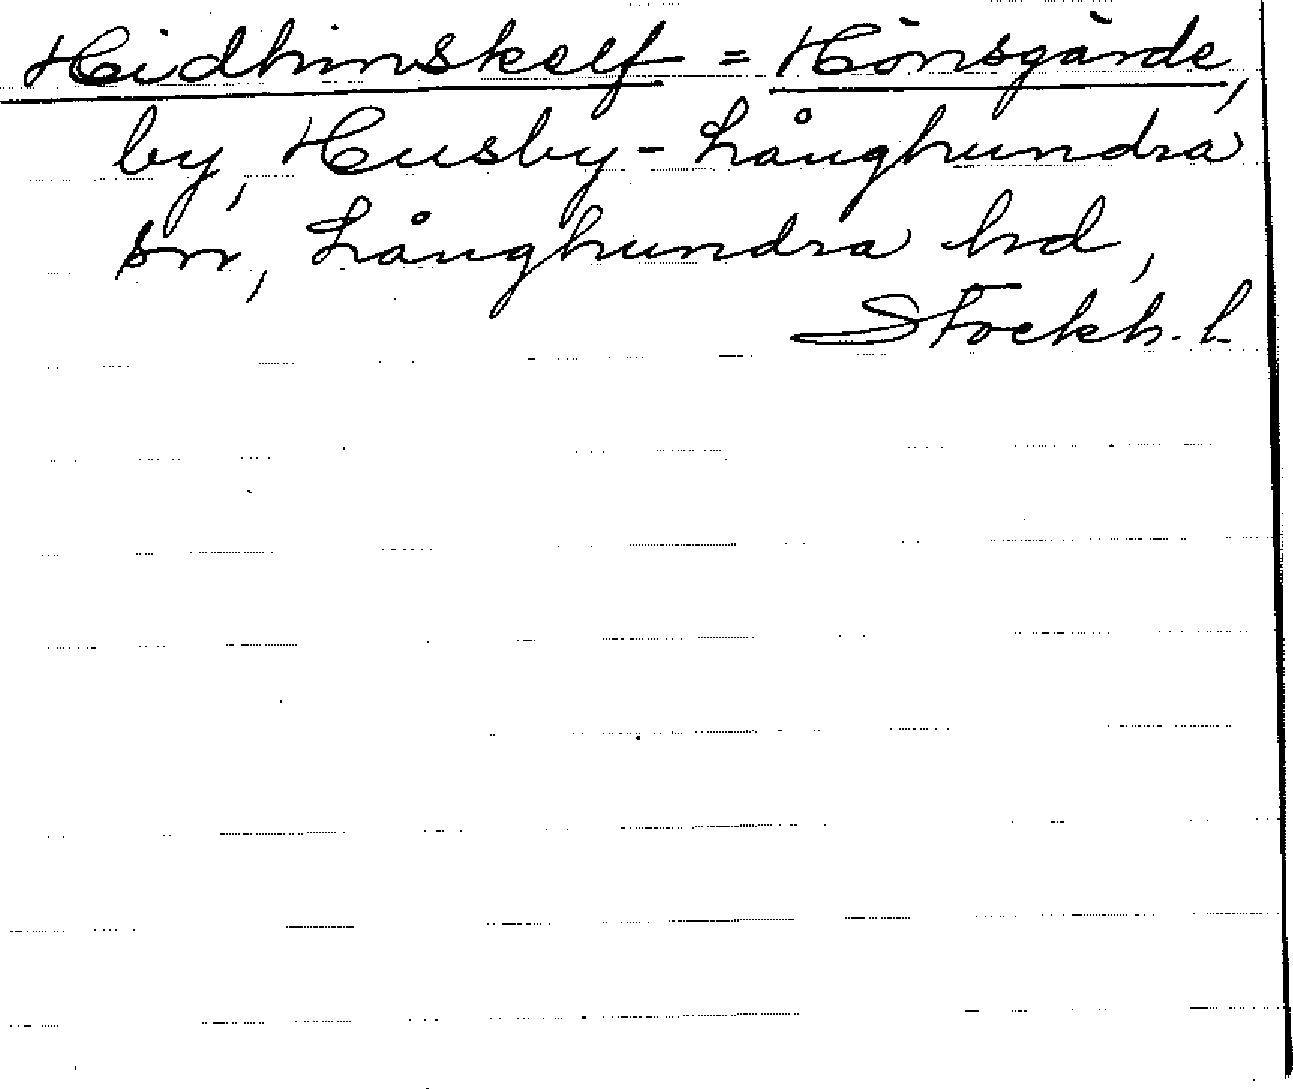 Hidhinskelf = Hönsgärde,
by, Husby-Långhundra
sn, Långhundra hd,
Stockh. l.